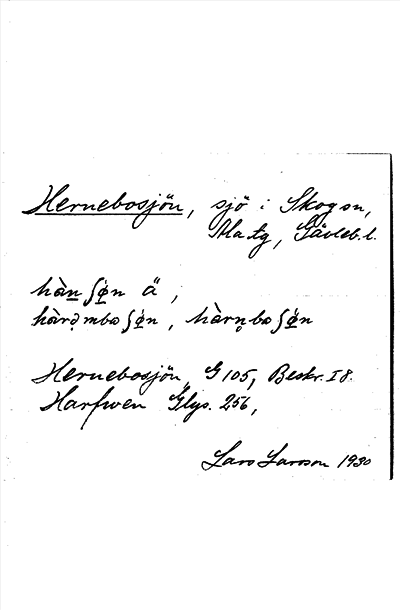 Hernebosjön, sjö i Skog sn,
Ala tg, Gävleb.l.
hàn ʃø̀n ä,
hàrəmbo ʃø̀n, hàrṇbo ʃø̀n
Hernebosjön G 105, Beskr. I 8.
Harfwen Glys. 256,
Lars Larsson 1930